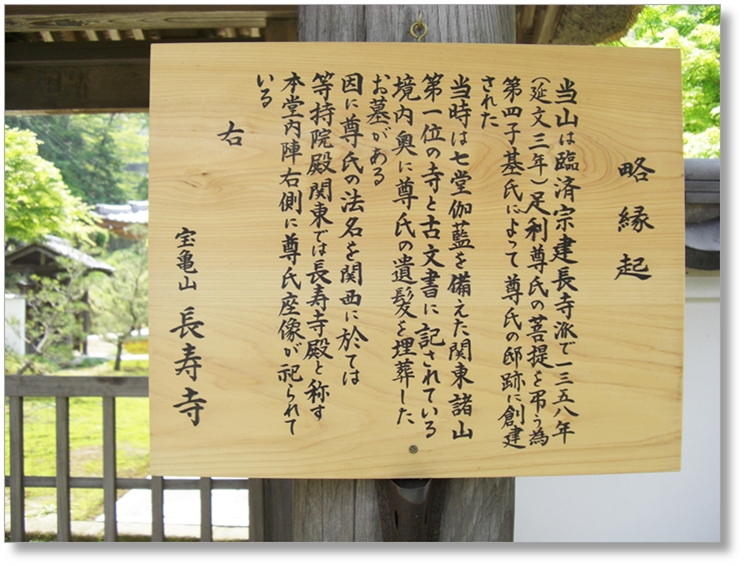 略縁起
当山は臨済宗建長寺派で一三五八年
（延文三年）足利尊氏の菩提を弔う為
第四子基氏によって尊氏の邸跡に創建
された
当時は七堂伽藍を備えた関東諸山
第一位の寺と古文書に記されている
境内奥に尊氏の遺髪を埋葬した
お墓がある
因に尊氏の法名を関西に於ては
等持院殿関東では長寿寺殿と称す
本堂内陣右側に尊氏座像が祀られて
いる
右
宝亀山 長寿寺